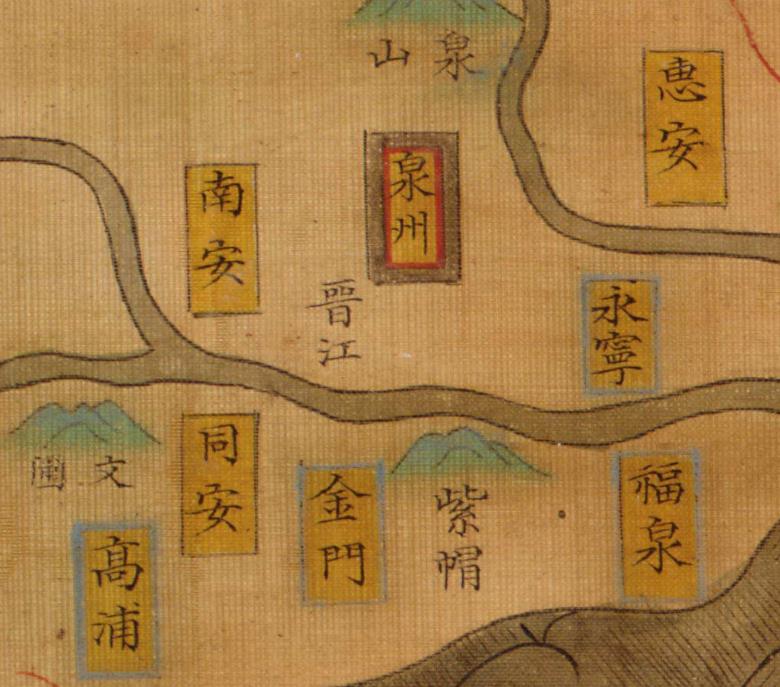 泉山
惠安
泉州
南安
晉江
永寧
同安
文圃
紫帽
福泉
金門
高浦